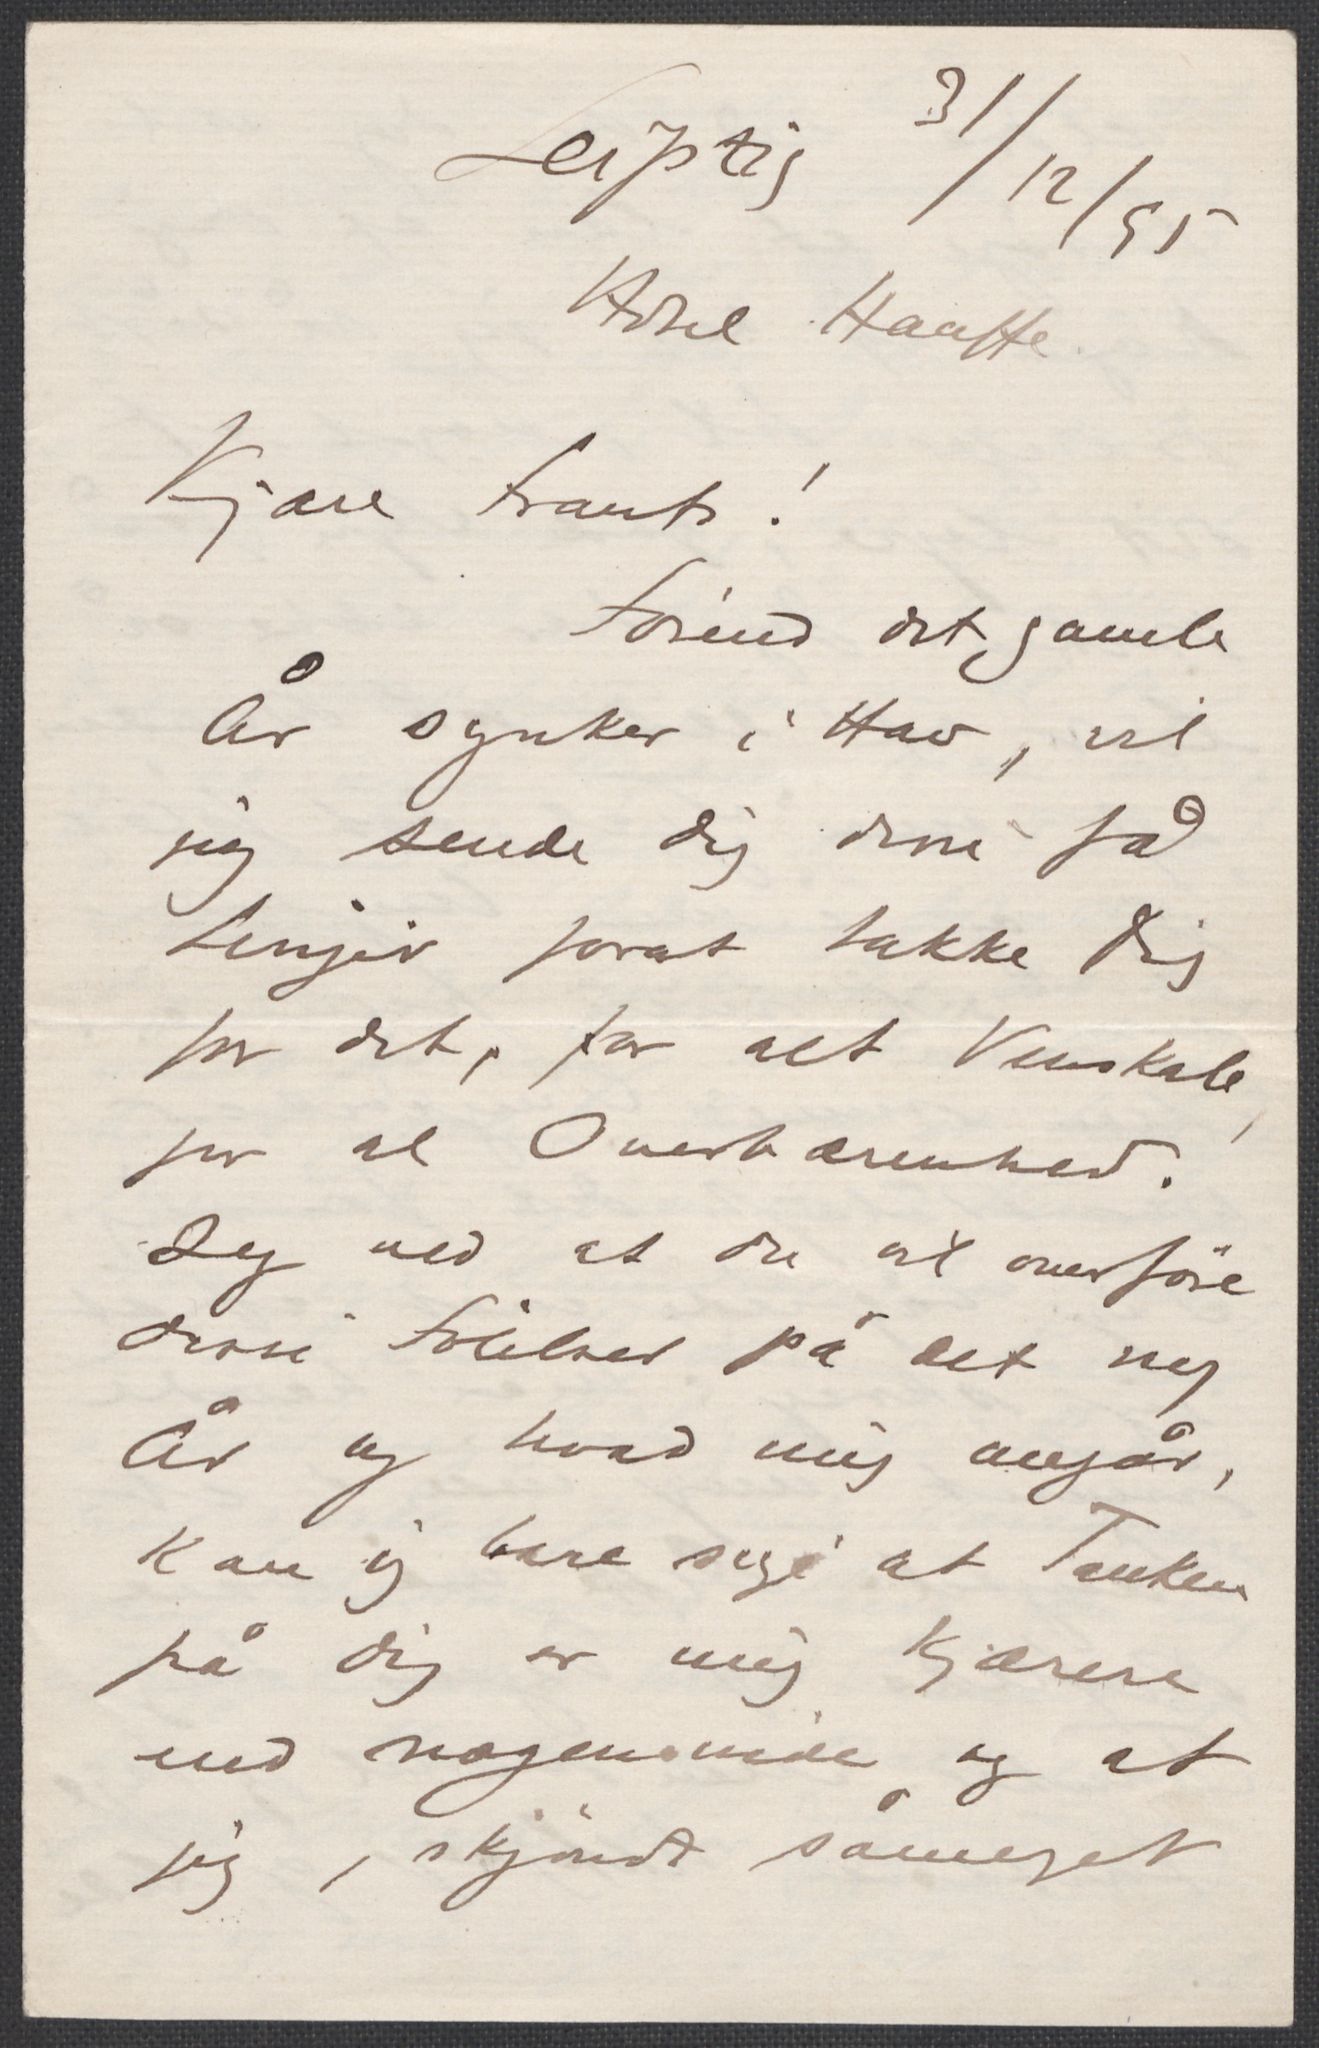 Leipzig 31/12/95
Hotel Hauffe.
Kjære Frants!
Förend det gamle
År synker i Hav, vil
jeg sende Dig disse få
Linjer forat takke Dig
for det, for alt Venskab,
for al Overbærenhed.
Jeg ved at Du vil overföre
disse Fölelser på det ny
År og hvad mig angår,
kan jeg bare sige at Tanken
på Dig er mig kjærere
end nogensinde og at
jeg, skjöndt såmeget